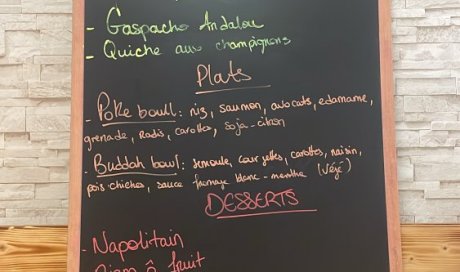 - Gaspacho Andalou
- Quiche aux champignons
Plats
- Poke boull : riz, saumon, avocats, edamame,
grenade, Radis, carottes, soja-citron
- Buddah bowl : semoule, courgettes, carottes, raisin,
pois chiches, sauce fromage blanc-menthe (Végé)
DESSERTS
- Napolitain
fruit